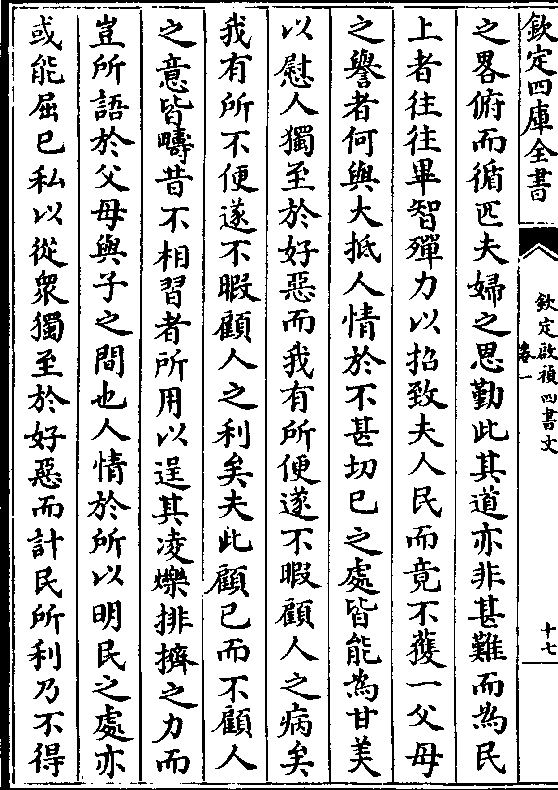 欽定四庫全書
欽定啟禎四書文
卷一
十七
之畧俯而循匹夫婦之思勤此其道亦非甚難而為民
上者往往畢智殫力以招致夫人民而竟不獲一父母
之譽者何與大抵人情於不甚切已之處皆能為甘美
以慰人獨至於好惡而我有所便遂不暇顧人之病矣
我有所不便遂不暇顧人之利矣夫此顧已而不顧人
之意皆疇昔不相習者所用以逞其凌爍排擠之力而
豈所語於父母與子之間也人情於所以明民之處亦
或能屈已私以從衆獨至於好惡而計民所利乃不得